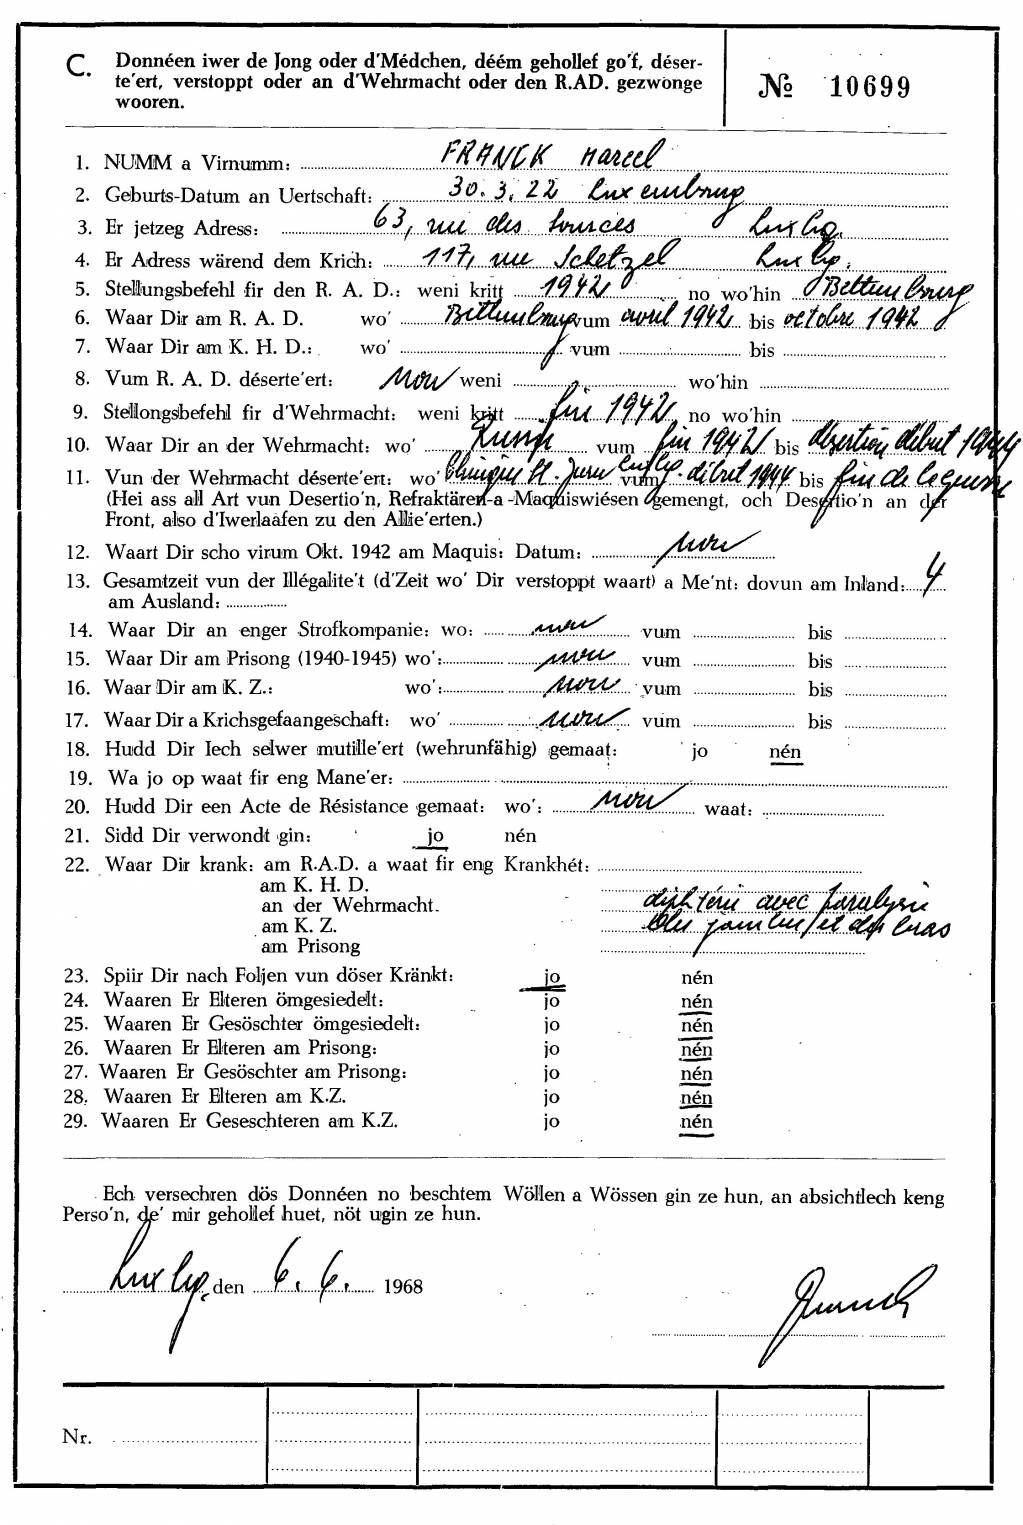 C. Donnéen iwer de Jong oder d'Médchen, déém gehollef go'f, déser-
te'ert, verstoppt oder an d'Wehrmacht oder den R.AD. gezwonge
wooren.
№ 10699
1. NUMM a Virnumm: FRANCK Marcel
2. Geburts-Datum an Uertschaft: 30.3.22 Luxembourg
3. Er jetzeg Adress: 63, rue des Sources Luxbg.
4. Er Adress wärend dem Krich: 117, rue Schetzel Luxbg.
5. Stellungsbefehl fir den R. A. D.: weni kritt 1942 no wo'hin Bettembourg
6. Waar Dir am R. A. D. wo' Bettembourg vum avril 1942 bis octobre 1942
7. Waar Dir am K. H. D.: wo' vum bis
8. Vum R. A. D. déserte'ert: Non weni wo'hin
9. Stellongsbefehl fir d'Wehrmacht: weni kritt fin 1942 no wo'hin
10. Waar Dir an der Wehrmacht: wo' Russie vum fin 1942 bis désertion début 1944
11. Vun der Wehrmacht déserte'ert: wo' Clinique St. Luxbg. vum début 1944 bis fin de la guerre
(Hei ass all Art vun Desertio'n, Refraktären-a-Maquiswiésen gemengt, och Desertio'n an der
Front, also d'Iwerlaafen zu den Allie'erten.)
12. Waart Dir scho virum Okt. 1942 am Maquis: Datum: Non
13. Gesamtzeit vun der Illégalite't (d'Zeit wo' Dir verstoppt waart) a Me'nt: dovun am Inland: 4
am Ausland:
14. Waar Dir an enger Strofkompanie: wo: non vum bis
15. Waar Dir am Prisong (1940-1945) wo': non vum bis
16. Waar Dir am K. Z.: wo': non vum bis
17. Waar Dir a Krichsgefaangeschaft: wo' non vum bis
18. Hudd Dir Iech selwer mutille'ert (wehrunfähig) gemaat: jo nén
19. Wa jo op waat fir eng Mane'er:
20. Hudd Dir een Acte de Résistance gemaat: wo': Non waat:
21. Sidd Dir verwondt gin: jo nén
22. Waar Dir krank: am R.A.D. a waat fir eng Krankhét:
am K. H. D.
an der Wehrmacht. diphtérie avec paralysie
am K. Z. des jambes et des bras
am Prisong
23. Spiir Dir nach Foljen vun döser Kränkt: jo nén
24. Waaren Er Elteren ömgesiedelt: jo nén
25. Waaren Er Gesöschter ömgesiedelt: jo nén
26. Waaren Er Elteren am Prisong: jo nén
27. Waaren Er Gesöschter am Prisong: jo nén
28. Waaren Er Elteren am K.Z. jo nén
29. Waaren Er Geseschteren am K.Z. jo nén
Ech versechren dös Donnéen no beschtem Wöllen a Wössen gin ze hun, an absichtlech keng
Perso'n, de' mir gehollef huet, nöt ugin ze hun.
Luxbg, den 6.6. 1968
Nr.